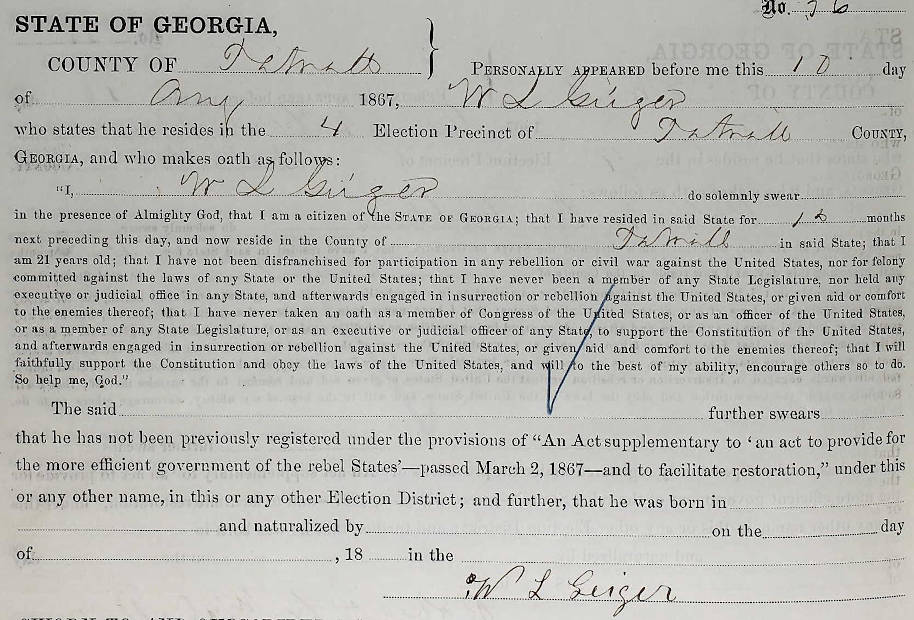 No. 76
STATE OF GEORGIA,
COUNTY OF Tatnall } PERSONALLY APPEARED before me this 10 day
of Aug 1867, W L Geiger
who states that he resides in the 4 Election Precinct of Tatnall COUNTY,
GEORGIA, and who makes oath as follows:
"I, W L Geiger do solemnly swear
in the presence of Almighty God, that I am a citizen of the STATE OF GEORGIA; that I have resided in said State for 12 months
next preceding this day, and now reside in the County of Tatnall in said State; that I
am 21 years old; that I have not been disfranchised for participation in any rebellion or civil war against the United States, nor for felony
committed against the laws of any State or the United States; that I have never been a member of any State Legislature, nor held any
executive or judicial office in any State, and afterwards engaged in insurrection or rebellion against the United States, or given aid or comfort
to the enemies thereof; that I have never taken an oath as a member of Congress of the United States, or as an officer of the United States,
or as a member of any State Legislature, or as an executive or judicial officer of any State, to support the Constitution of the United States,
and afterwards engaged in insurrection or rebellion against the United States, or given aid and comfort to the enemies thereof; that I will
faithfully support the Constitution and obey the laws of the United States, and will to the best of my ability, encourage others so to do.
So help me, God."
The said further swears
that he has not been previously registered under the provisions of "An Act supplementary to 'an act to provide for
the more efficient government of the rebel States'—passed March 2, 1867—and to facilitate restoration," under this
or any other name, in this or any other Election District; and further, that he was born in
and naturalized by on the day
of , 18 in the
W L Geiger